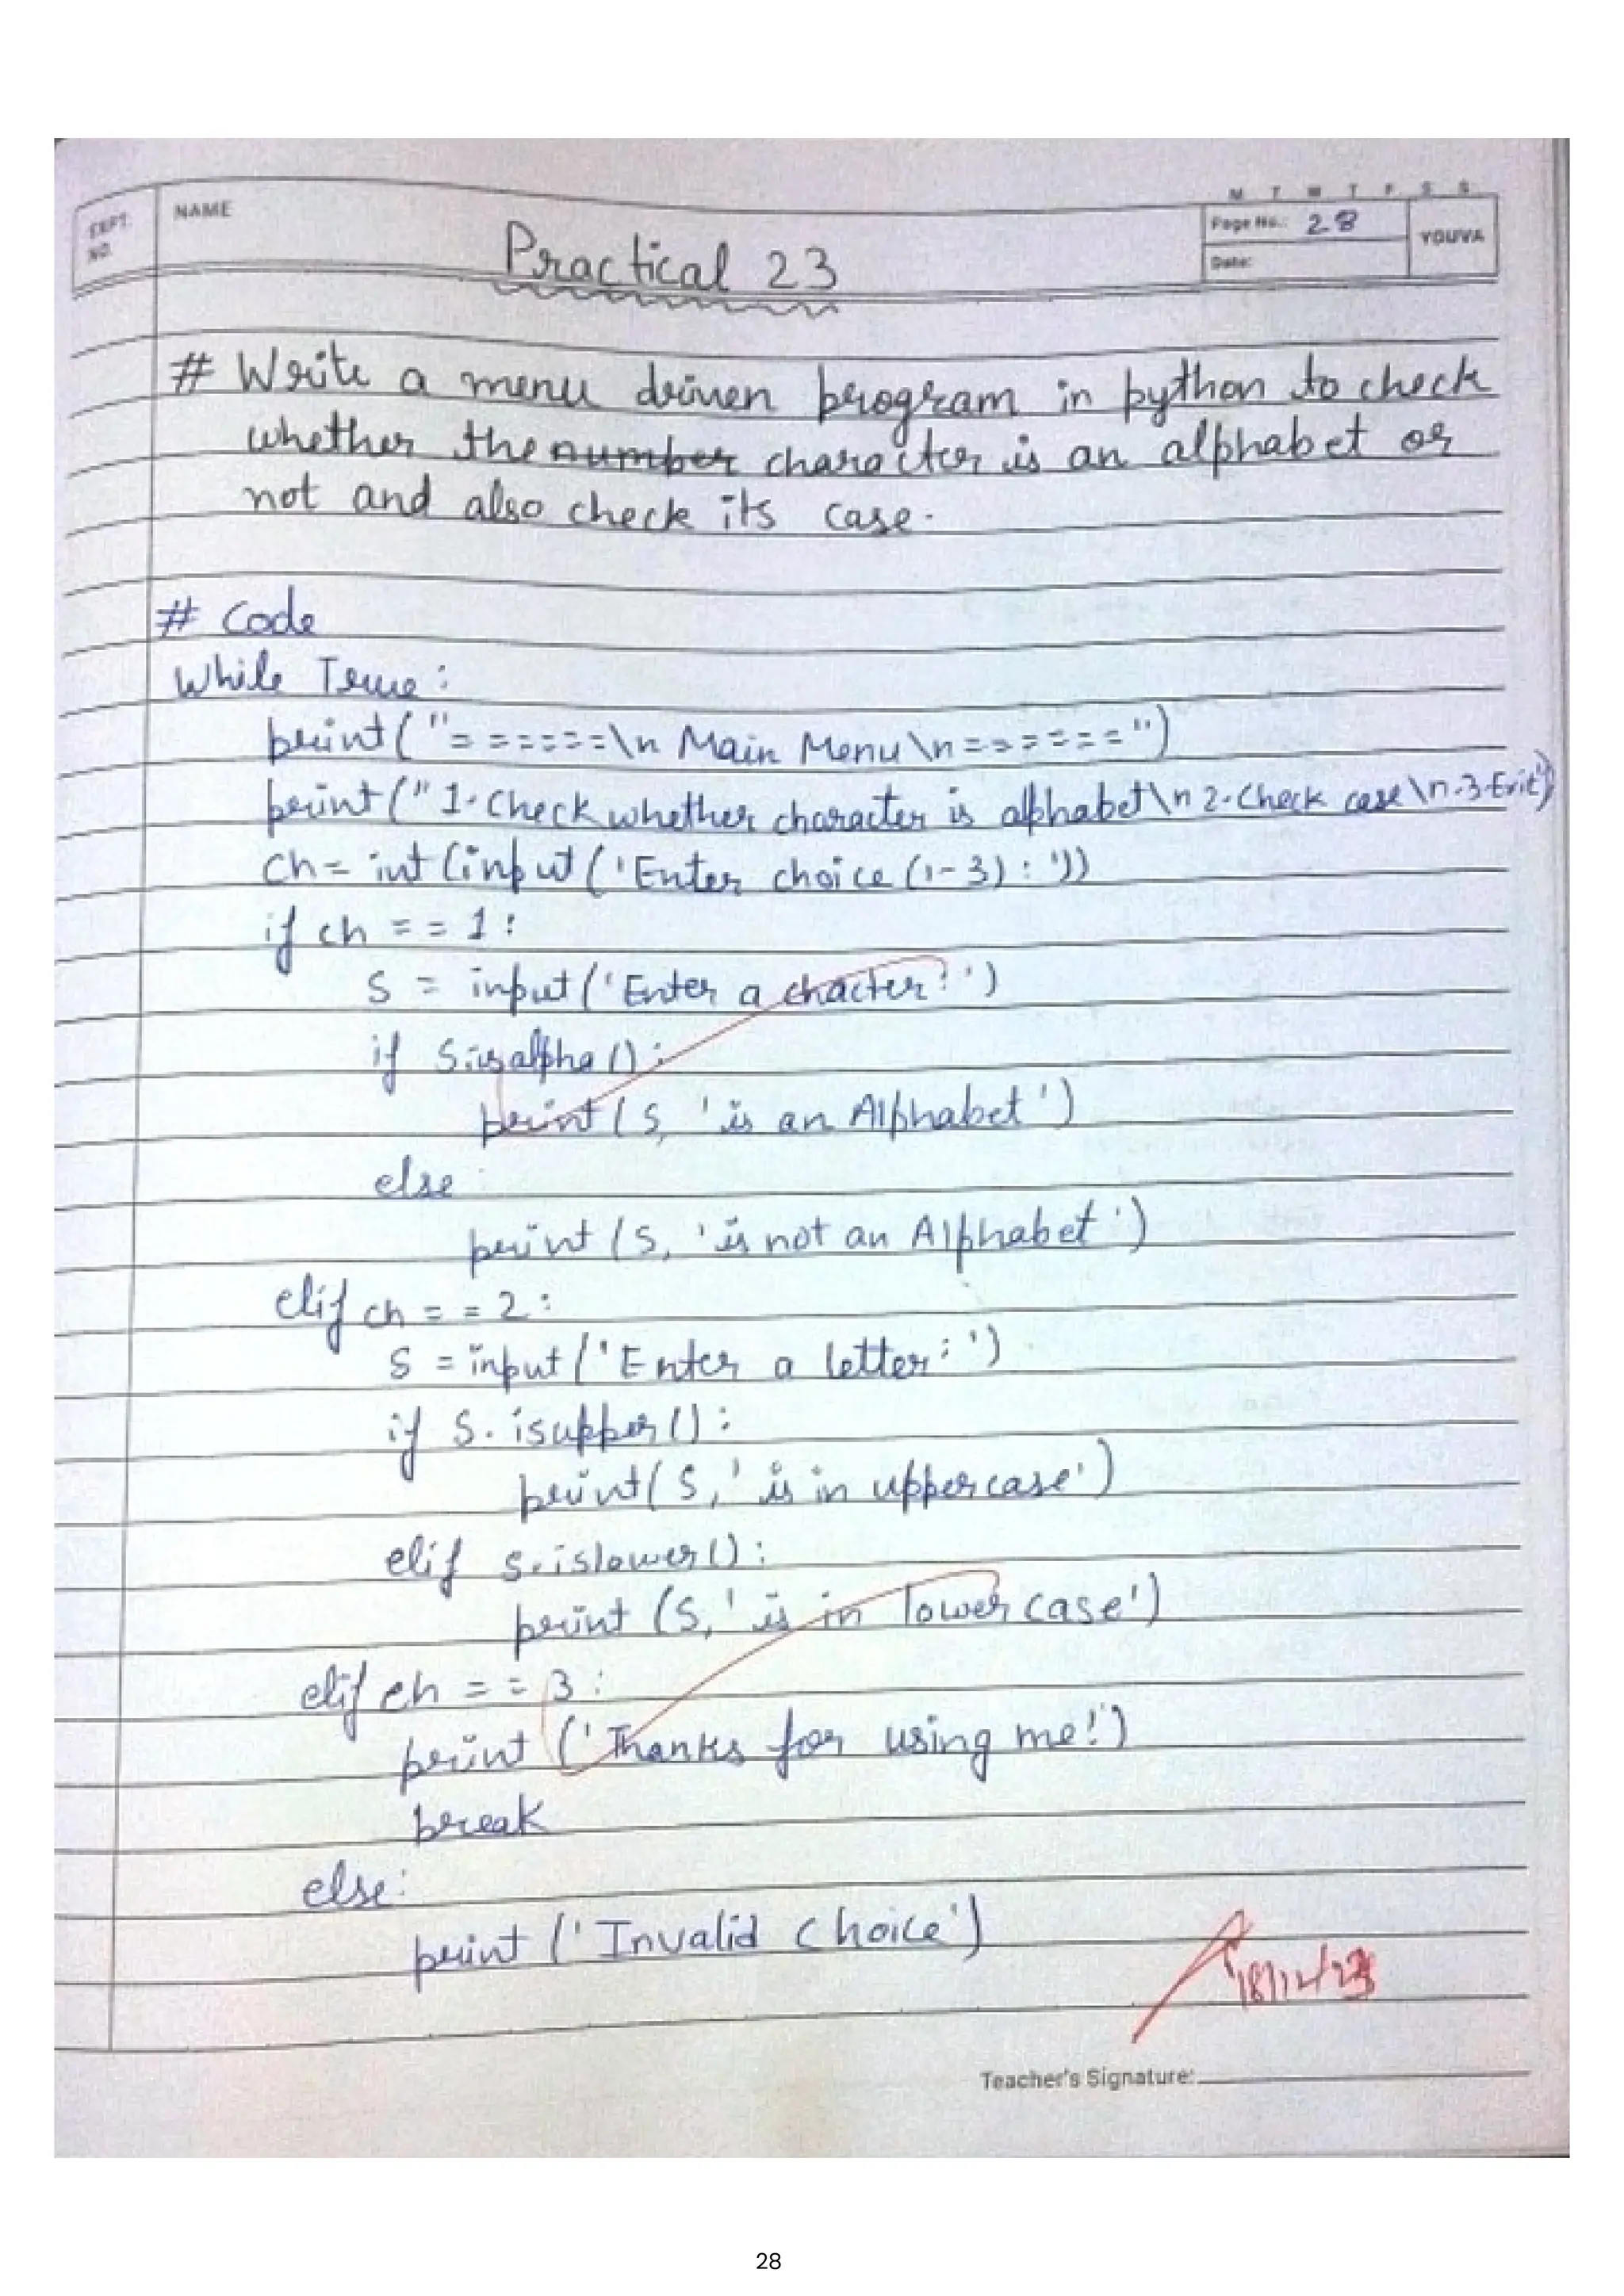 M T W T F S S
EXPT. NO. NAME Page No.: 28 YOUVA
Date:
Practical 23
# Write a menu driven program in python to check
whether the number character is an alphabet or
not and also check its case.
# Code
While True:
print("======\n Main Menu\n======")
print("1.Check whether character is alphabet\n2.Check case\n.3.Exit")
ch= int(input('Enter choice (1-3): '))
if ch == 1:
S = input('Enter a chacter: ')
if S.isalpha():
print(S, 'is an Alphabet')
else
print(S, 'is not an Alphabet')
elif ch == 2:
S = input('Enter a letter: ')
if S.isupper():
print(S,' is in uppercase')
elif s.islower():
print (S,' is in lowercase')
elif ch == 3:
print ('Thanks for using me!')
break
else:
print ('Invalid choice')
18/12/23
Teacher's Signature:
28